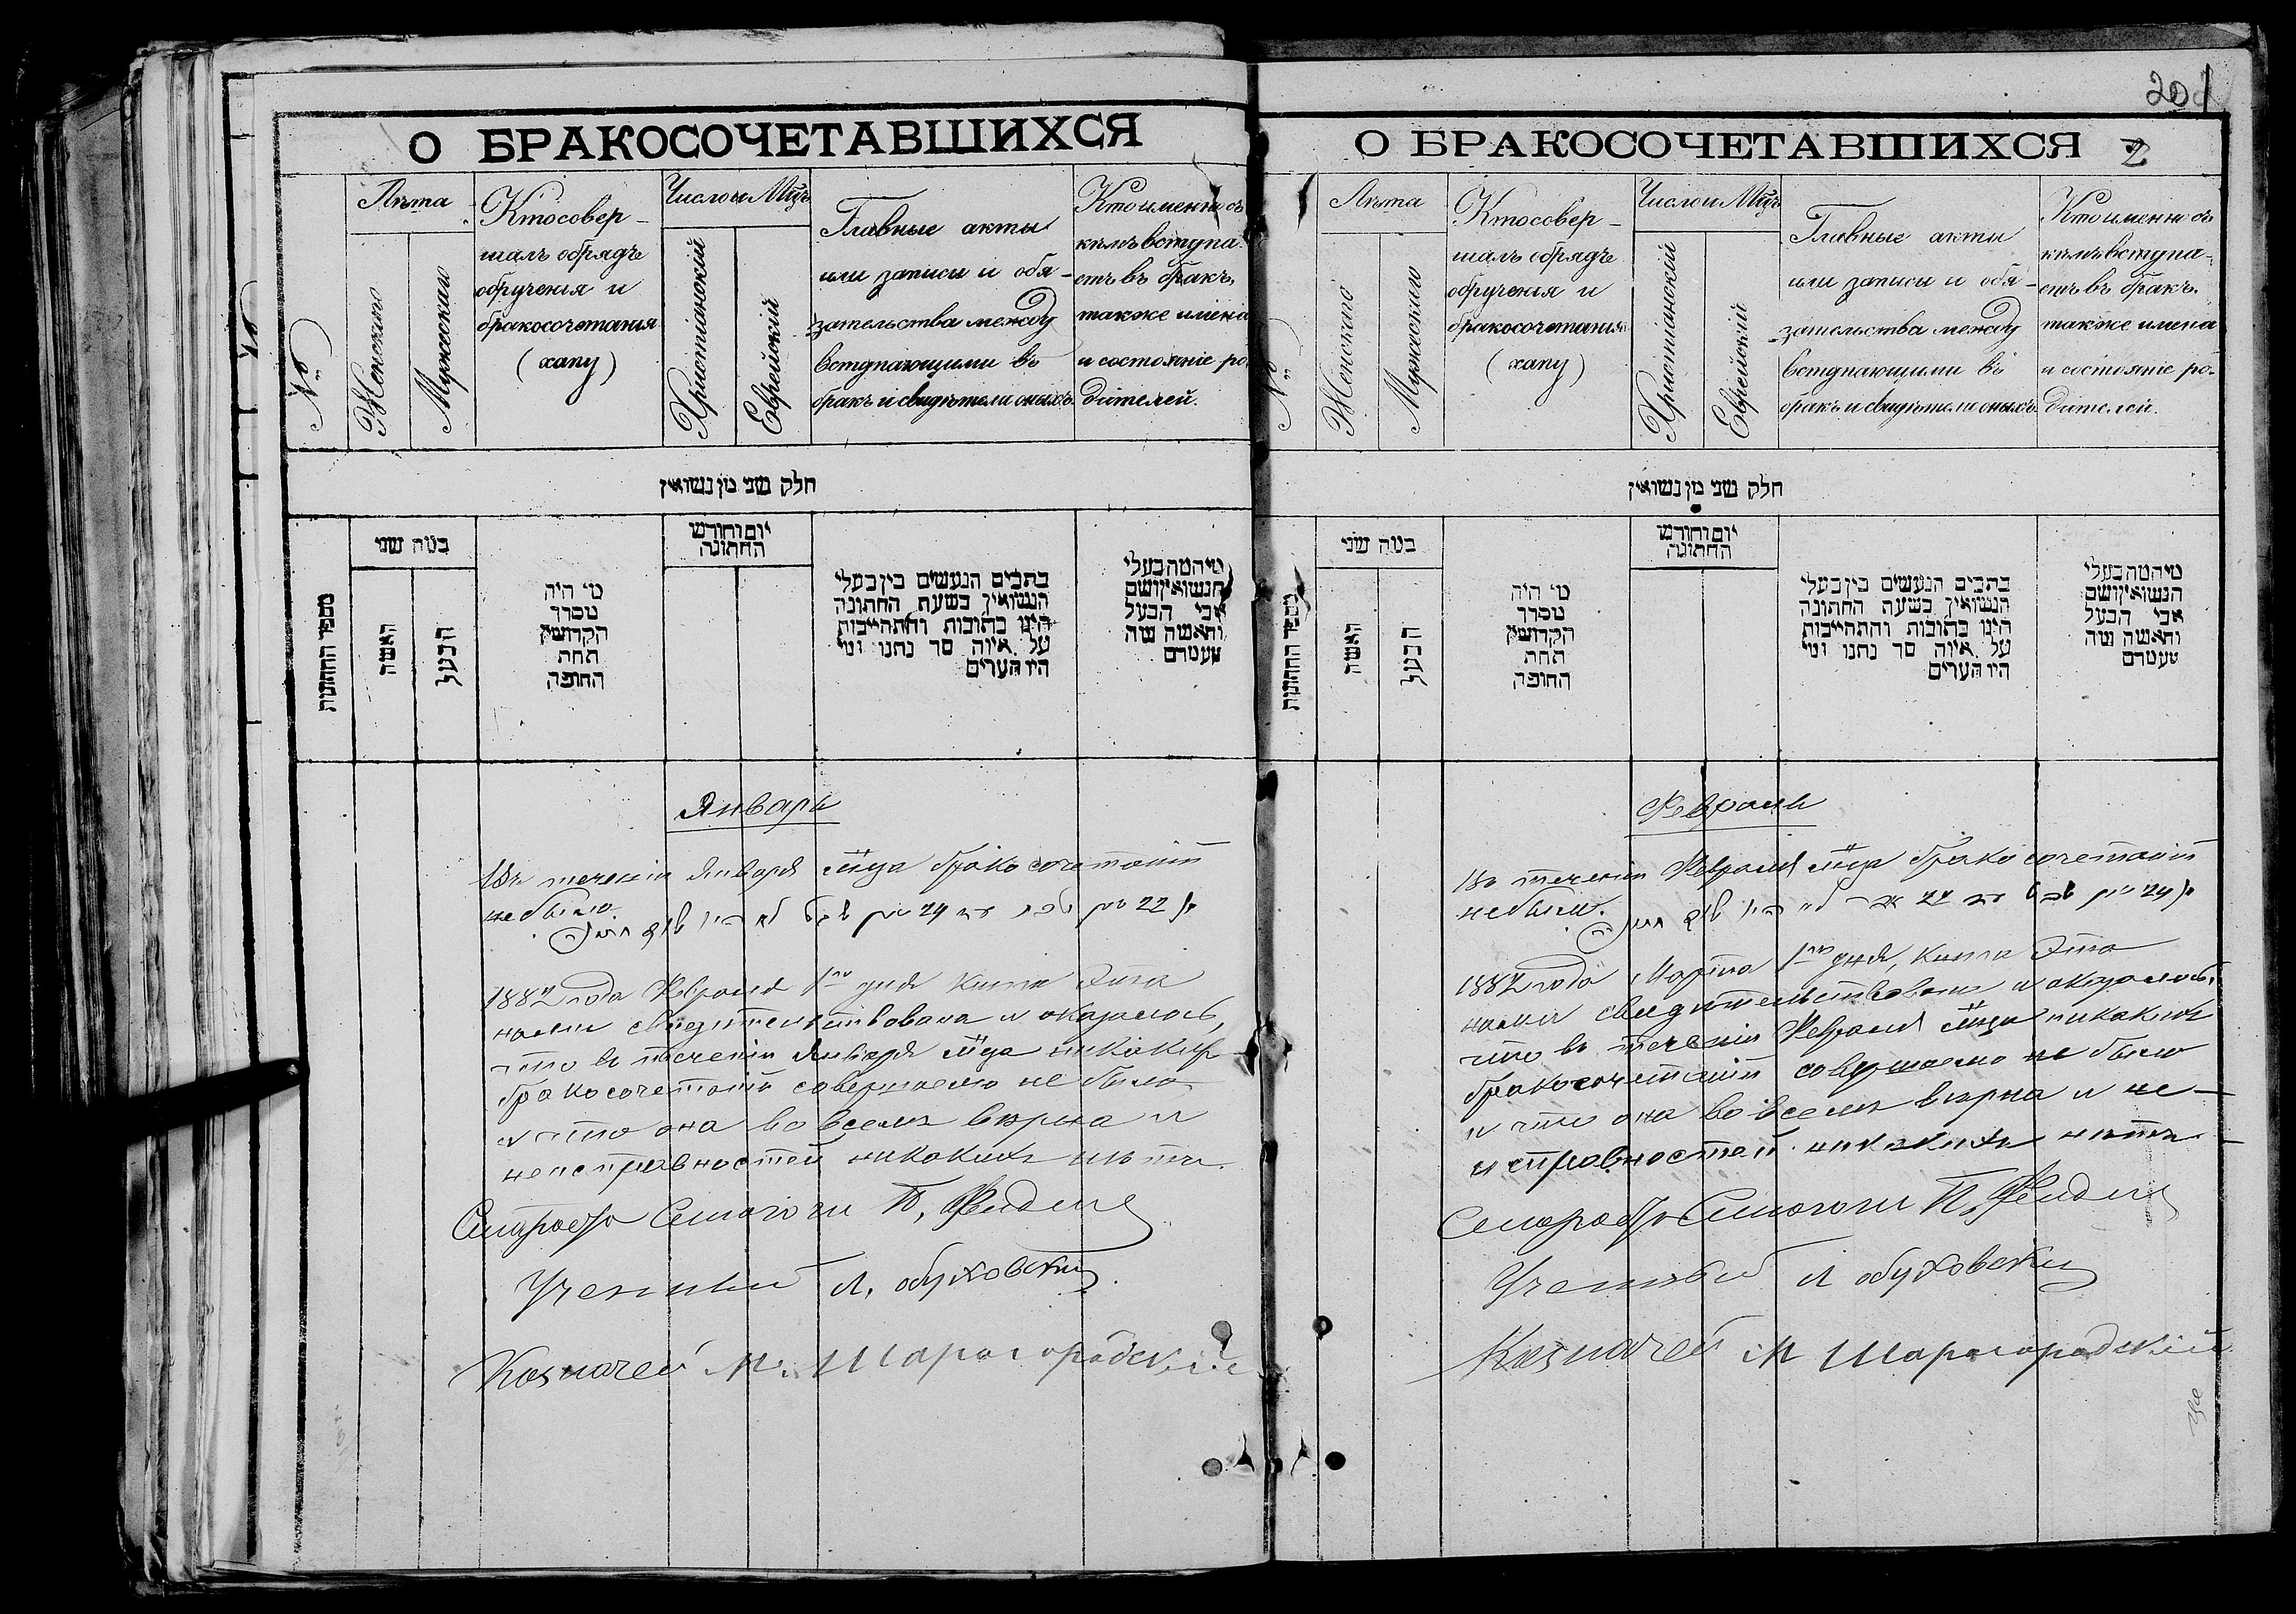 О БРАКОСОЧЕТАВШИХСЯ
№
Лѣта
Женскаго
Мужескаго
Кто совер-
шалъ обрядъ
обрученія и
бракосочетанія
(хапу)
Число и Мц҃ъ
Христіанскій
Еврейскій
Главные акты
или записи и обя-
зательства между
вступающими въ
бракъ и свидѣтели оныхъ.
Кто именно съ
кѣмъ вступа-
етъ въ бракъ,
также имена
и состояніе ро-
дителей.
חלק שני מן נשואין
מספר החתונות
כמה שני
האשה
הבעל
מי היה
מסדר
הקדושין
תחת
החופה
יום וחודש
החתונה
כתבים הנעשים בין בעלי
הנשואין בשעת החתונה
היינו כתובות והתחייבות
על איזה סך נתנו ומי
היו העדים
מי המה בעלי
הנשואין ושם
אבי הבעל
והאשה מה
מעמדם
Январь
Въ теченіи Января м҃ца бракосочетаній
не было.
1882 года Февраля 1го дня книга эта
нами свидетельствована и оказалось,
что въ теченіи Января м҃ца никакихъ
бракосочетаній совершаемо не было
и что она во всемъ вѣрна и
неисправностей никакихъ нѣтъ.
Староста Синагоги
Ученый Л. Обуховскій
Казначей М. Шарогородскій
201
О БРАКОСОЧЕТАВШИХСЯ 2
№
Лѣта
Женскаго
Мужескаго
Кто совер-
шалъ обрядъ
обрученія и
бракосочетанія
(хапу)
Число и Мц҃ъ
Христіанскій
Еврейскій
Главные акты
или записи и обя-
зательства между
вступающими въ
бракъ и свидѣтели оныхъ.
Кто именно съ
кѣмъ вступа-
етъ въ бракъ,
также имена
и состояніе ро-
дителей.
חלק שני מן נשואין
מספר החתונות
כמה שני
האשה
הבעל
מי היה
מסדר
הקדושין
תחת
החופה
יום וחודש
החתונה
כתבים הנעשים בין בעלי
הנשואין בשעת החתונה
היינו כתובות והתחייבות
על איזה סך נתנו ומי
היו העדים
מי המה בעלי
הנשואין ושם
אבי הבעל
והאשה מה
מעמדם
Февраль
Въ теченіи Февраля м҃ца бракосочетаній
не было.
1882 года Марта 1го дня, книга эта
нами свидетельствована и оказалось,
что въ теченіи Февраля м҃ца никакихъ
бракосочетаній совершаемо не было
и что она во всемъ вѣрна и не-
исправностей никакихъ нѣтъ.
Староста Синагоги
Ученый Л Обуховскій
Казначей М Шарогородскій